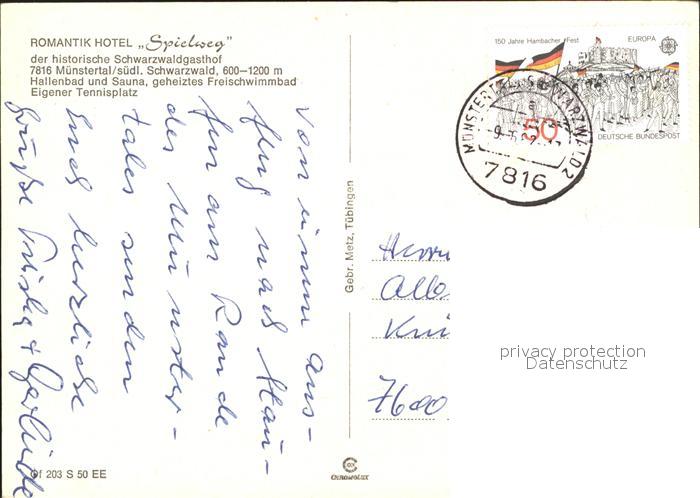 ROMANTIK HOTEL „Spielweg”
der historische Schwarzwaldgasthof
7816 Münstertal/südl. Schwarzwald, 600–1200 m
Hallenbad und Sauna, geheiztes Freischwimmbad
Eigener Tennisplatz
Von einem Aus-
flug nach Stau-
fen am Rande
des Münster-
tales senden
Euch herzliche
Grüße
Gf 203 S 50 EE
Gebr. Metz, Tübingen
CHROMOLUX
150 Jahre Hambacher Fest
EUROPA
50
DEUTSCHE BUNDESPOST
MÜNSTERTAL, SCHWARZWALD 2
7816
Herrn
7600
privacy protection
Datenschutz